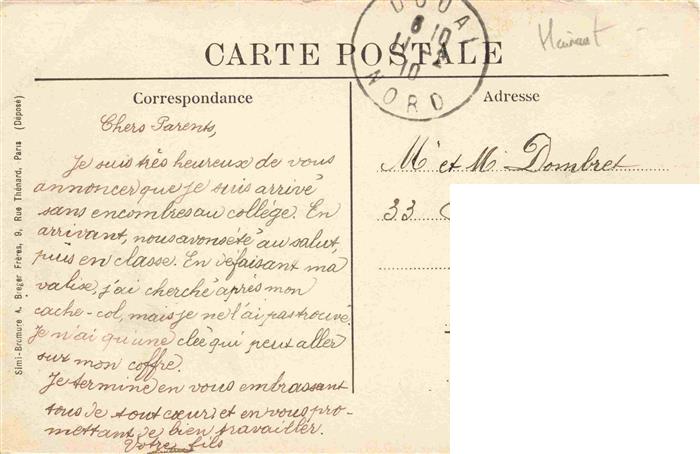 CARTE POSTALE
DOUAI
NORD
Hainaut
Correspondance
Adresse
Chers Parents,
Je suis très heureux de vous
annoncer que je suis arrivé
sans encombres au collège. En
arrivant, nous avons été au salut,
puis en classe. En défaisant ma
valise, j'ai cherché après mon
cache-col, mais je ne l'ai pas trouvé.
Je n'ai qu'une clée qui peut aller
sur mon coffre.
Je termine en vous embrassant
tous de tout cœur, et en vous pro-
mettant de bien travailler.
Votre fils
Mr et M. Dombret
33
Simi-Bromure A. Breger Frères, 9, Rue Thénard, Paris (Déposé)